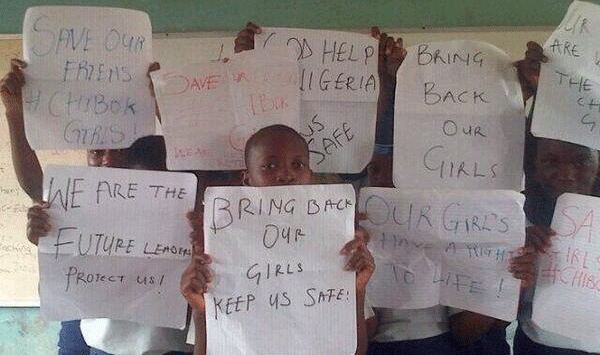 SAVE OUR
FRIENS
#CHIBOK
GIRLS!
SAVE
GOD HELP
NIGERIA
US
SAFE
BRING
BACK
OUR
GIRLS
ARE
THE
WE ARE THE
FUTURE LEADERS
PROTECT US!
BRING BACK
OUR
GIRLS
KEEP US SAFE!
OUR GIRL'S
HAVE A RIGHT
TO LIFE!
SA
GIRLS
#CHIBO